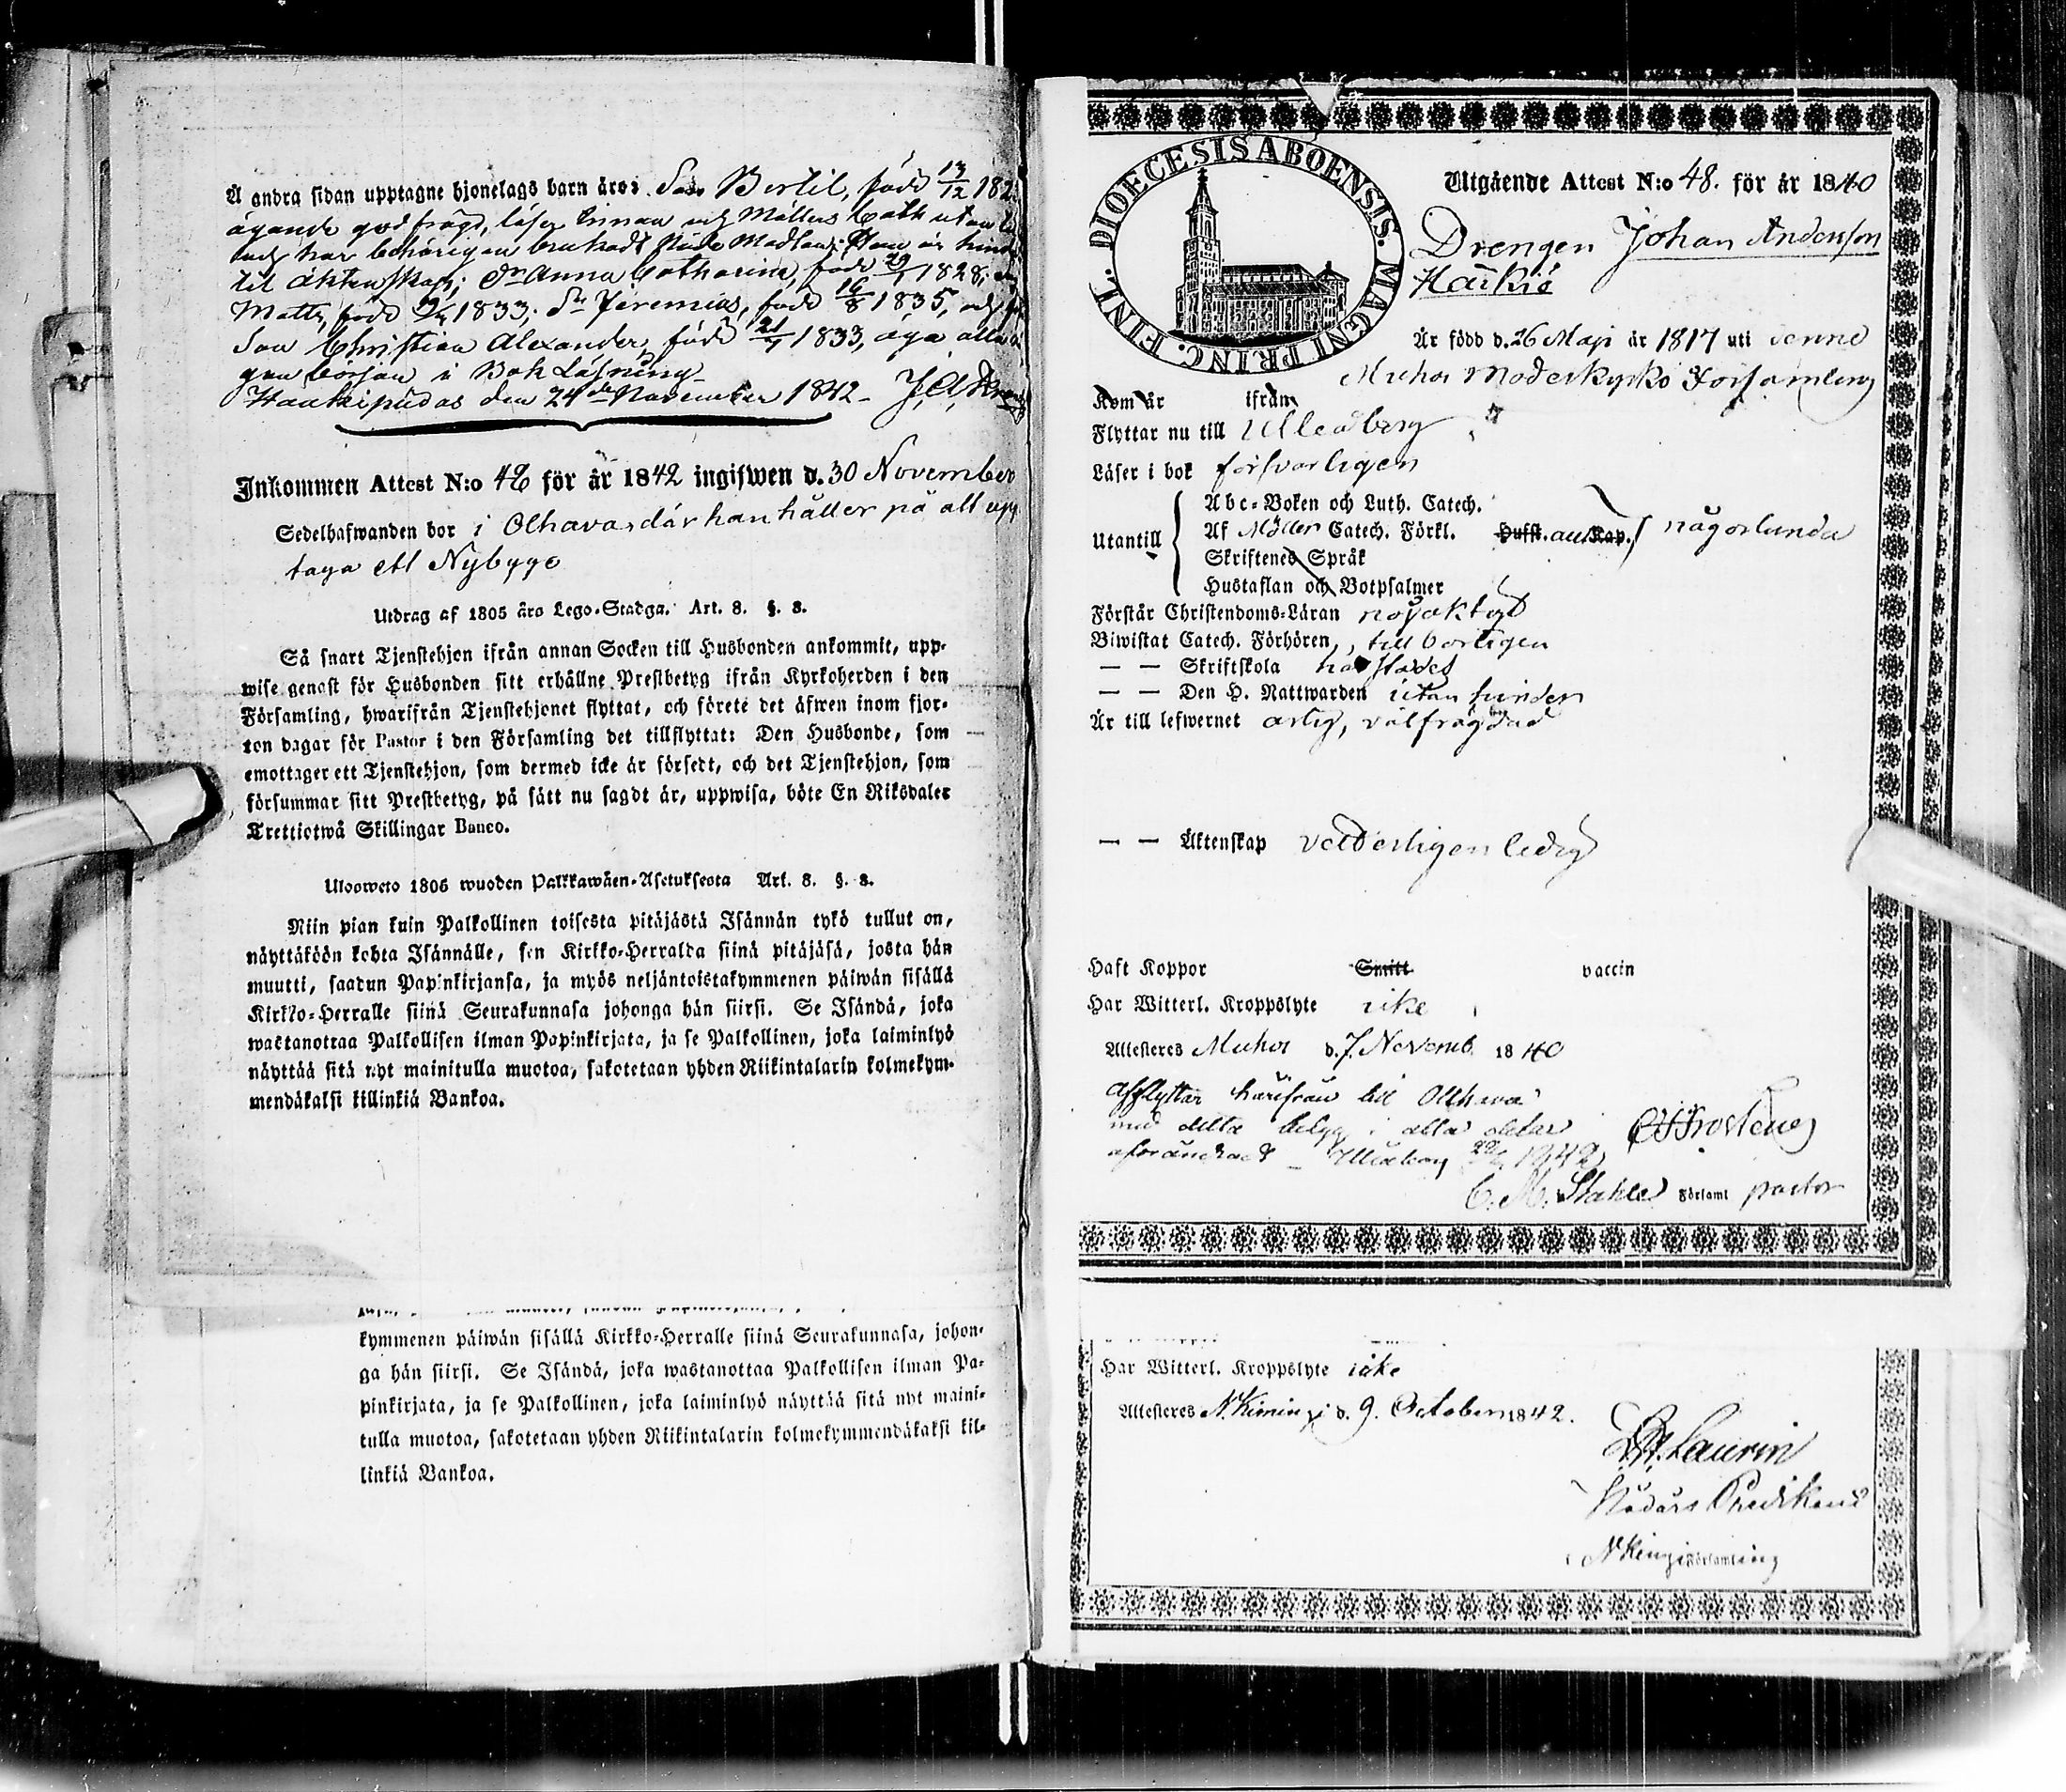 Å andra sidan upptagne hjonelags barn äro: Son Bertil, född 13/12 182
ägande god frägd, läser innan och Möllers Cath utan
och har behörigen brukadt Nåde Medlen;
til äktenskap; Dr Anna Catharina, född 29/1 1828;
Matts, född 1833; Sn Jeremias, född 16/8 1835, och
Son Christian Alexander, född 21/1 1833, äga alla
gen början i Bok Läsning
Haukipudas den 24de November 1842 -
Inkommen Attest N:o 46 för år 1842 ingifwen d. 30 November
Sedelhafwanden bor i Olhava, där han håller på att upp
taga ett Nybygge
Utdrag af 1805 års Lego-Stadga. Art. 8. §. 8.
Så snart Tjenstehjon ifrån annan Socken till Husbonden ankommit, upp-
wise genast för Husbonden sitt erhållne Prestbetyg ifrån Kyrkoherden i den
Församling, hwarifrån Tjenstehjonet flyttat, och förete det äfwen inom fjor-
ton dagar för Pastor i den Församling det tillflyttat: Den Husbonde, som
emottager ett Tjenstehjon, som dermed icke är försedt, och det Tjenstehjon, som
försummar sitt Prestbetyg, på sätt nu sagdt är, uppwisa, böte En Riksdaler
Trettiotwå Skillingar Banco.
Uloosweto 1805 wuoden Palkkawäen-Asetuksesta Art. 8. §. 8.
Niin pian kuin Palkollinen toisesta pitäjästä Isännän tykö tullut on,
näyttäköön kohta Isännälle, sen Kirkko-Herralda siinä pitäjäsä, josta hän
muutti, saadun Papinkirjansa, ja myös neljäntoistakymmenen päiwän sisällä
Kirkko-Herralle siinä Seurakunnasa johonga hän siirsi. Se Isändä, joka
wastanottaa Palkollisen ilman Papinkirjata, ja se Palkollinen, joka laiminlyö
näyttää sitä nyt mainitulla muotoa, sakotetaan yhden Riikintalarin kolmekym-
mendäkaksi killinkiä Bankoa.
kymmenen päiwän sisällä Kirkko-Herralle siinä Seurakunnasa, johon-
ga hän siirsi. Se Isändä, joka wastanottaa Palkollisen ilman Pa-
pinkirjata, ja se Palkollinen, joka laiminlyö näyttää sitä nyt maini-
tulla muotoa, sakotetaan yhden Riikintalarin kolmekymmendäkaksi kil-
linkiä Bankoa.
DIOECESIS ABOENSIS. MAGNI PRINC. FINL.
Utgående Attest N:o 48. för år 1840
Drengen Johan Anderson
Är född d. 26 Maji år 1817 uti denne
Muhos Moderkyrko Församling
Kom år ifrån
Flyttar nu till Uleåborg
Läser i bok försvarligen
Abc-Boken och Luth. Catech.
Utantill Af Möllers Catech. Förkl. Hufst. Kap. någorlunda
Skriftenes Språk
Hustaflan och Botpsalmer
Förstår Christendoms-Läran nöjaktigt
Biwistat Catech. Förhören, tillbörligen
— — Skriftskola
— — Den H. Nattwarden utan hinder
Är till lefwernet arlig, välfrägdad
— — Äktenskap vetterligen ledig
Haft Koppor Smitt vaccin
Har Witterl. Kroppslyte icke
Attesteres Muhos d. 7. Novemb. 1840
Afflyttar härifrån till Olhava
med detta betyg i alla delar
oförändradt - Uleåborg 1842
Församl pastor
Har Witterl. Kroppslyte icke
Attesteres N. Kiminge d. 9. October 1842.
Laurin
Predikant
Församling